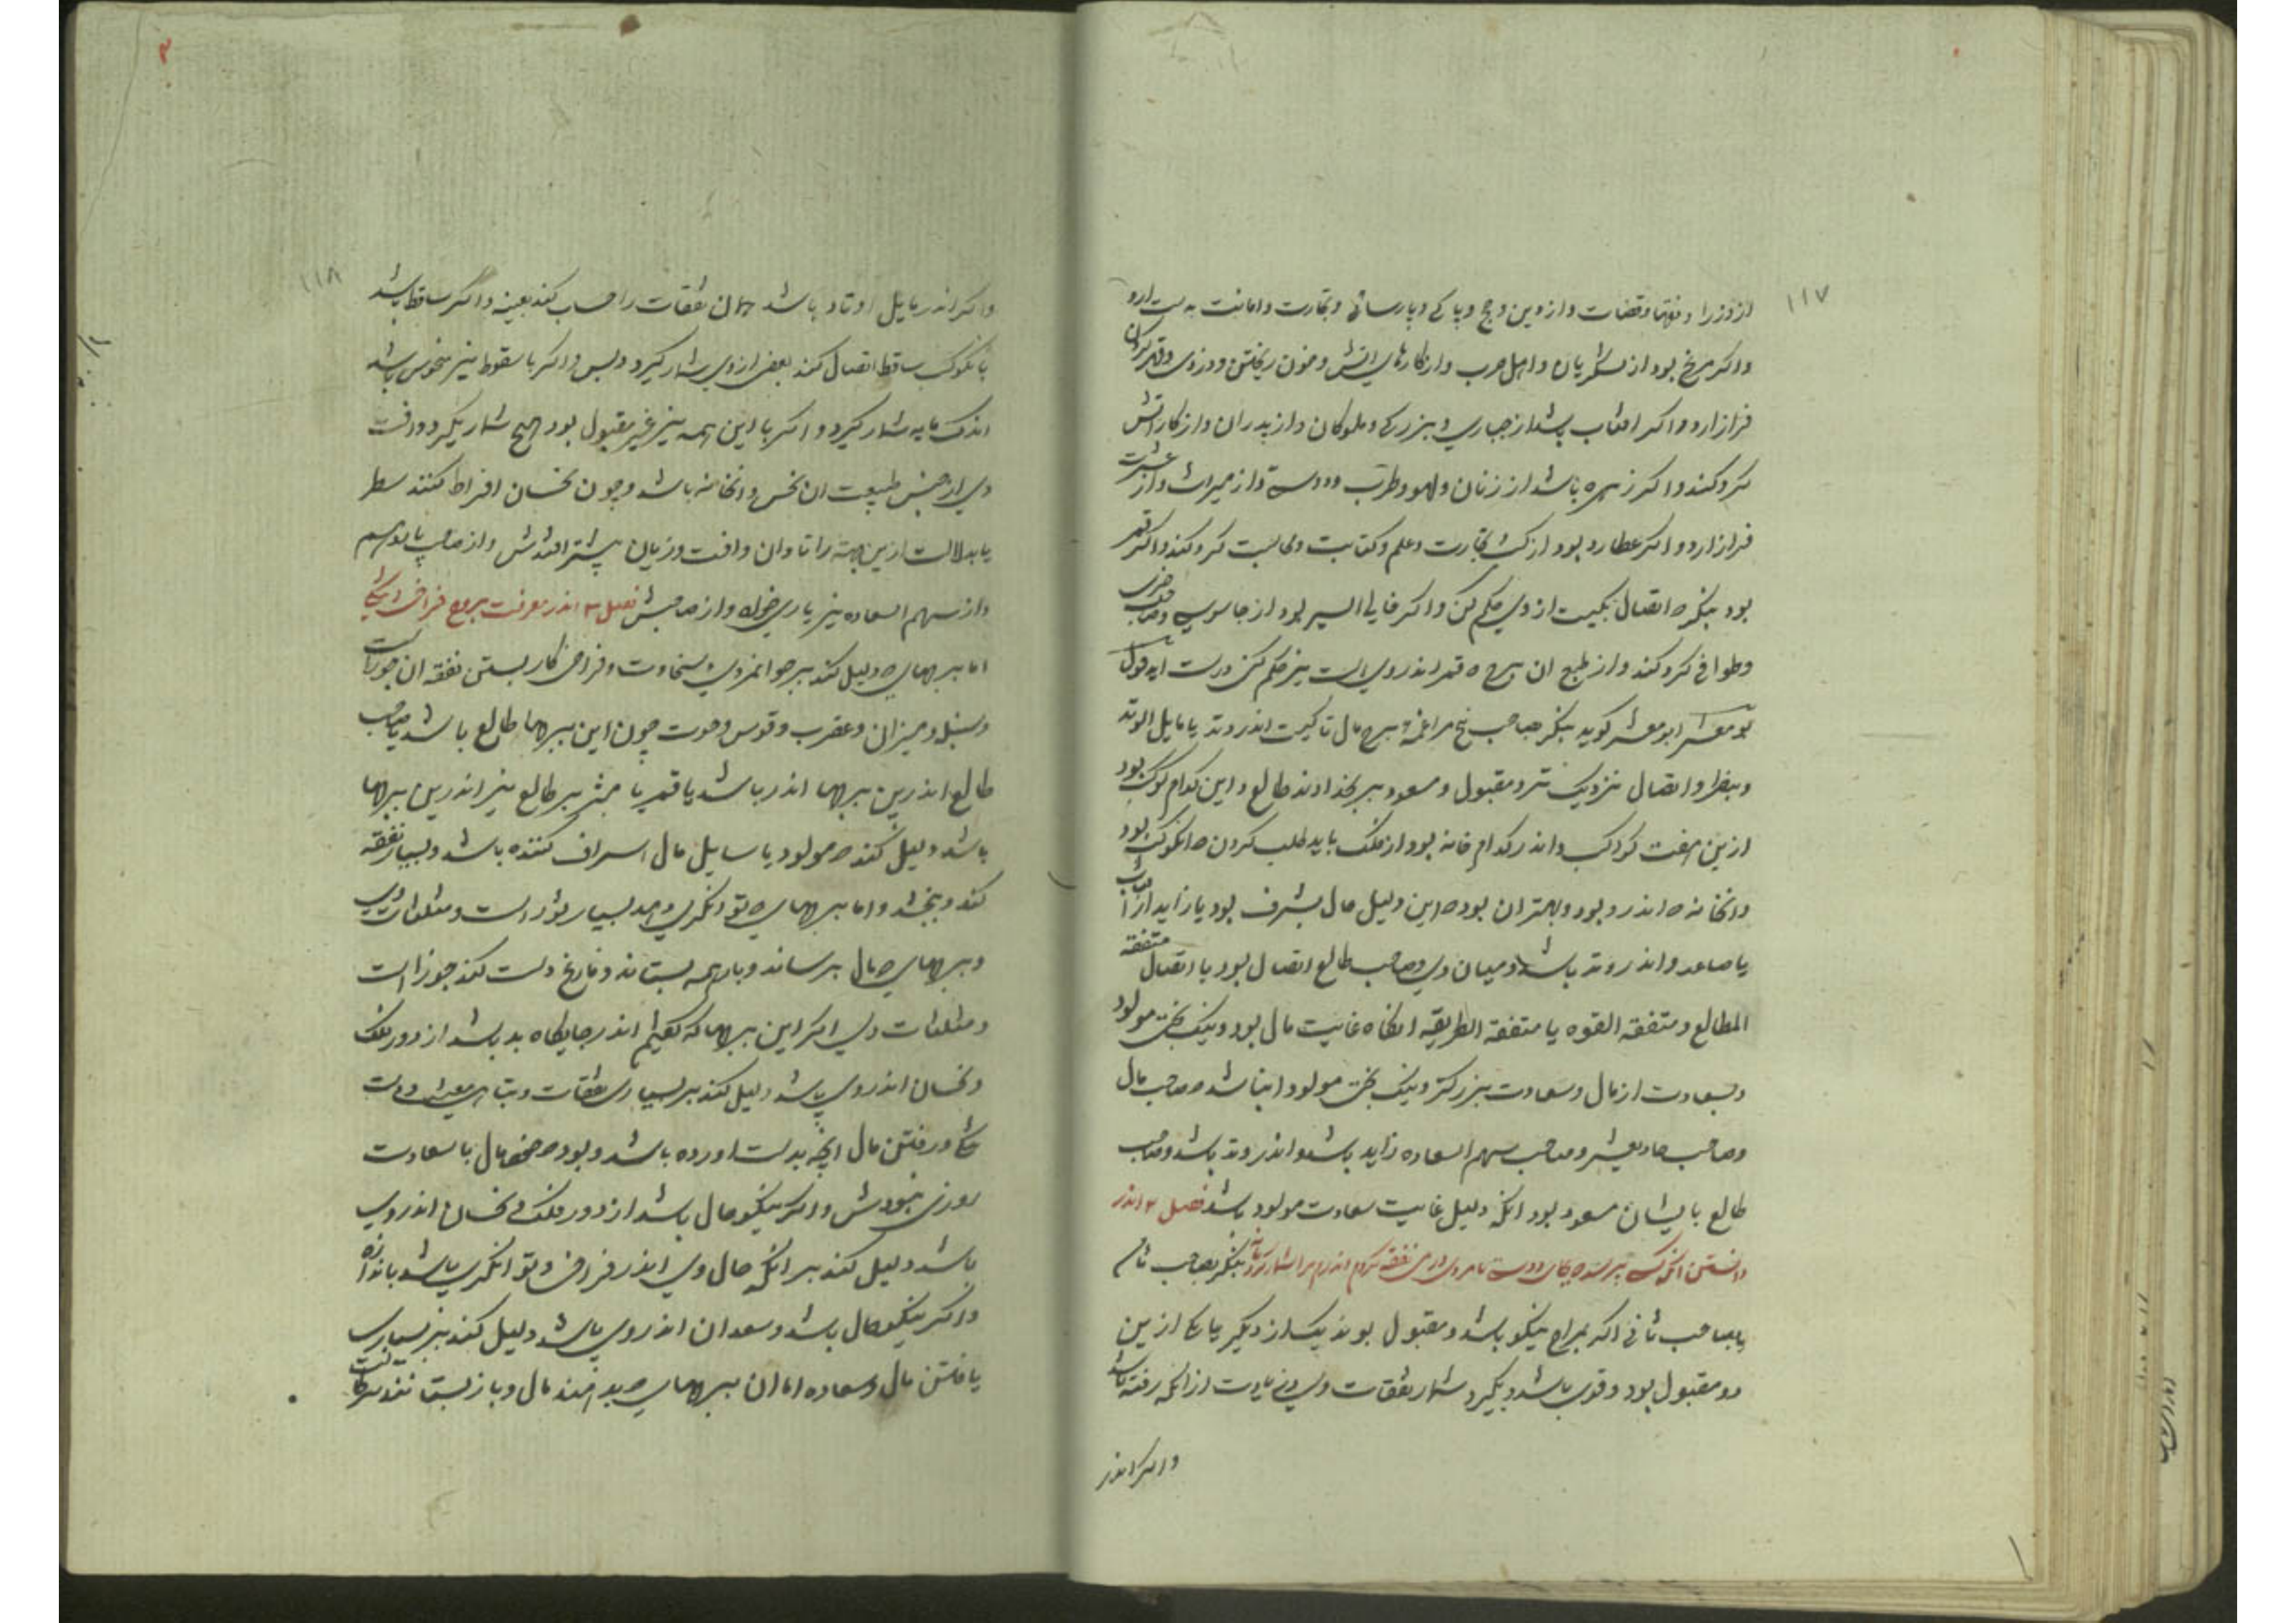 ۱۱۷
از وزرا و فقها و قضات و از دین و حج و پاکی و پارسائی و تجارت و امانت بدست ارد
واکر مریخ بود از لشکریان و اهل حرب و از کارهای اتش و خون ریختن و دزدی و
فراز ارد واکر افتاب باشد از جباری و بزرکی و ملوکان و از پدران و از کار اتش
کرد کند واکر زهره باشد از زنان و لهو و طرب و دوستی و از میراث و از عشرت
فراز ارد واکر عطارد بود از کسب تجارت و علم و کتابت و محاسبت کرد کند واکر قمر
بود بنکر که اتصال بکیست از وی حکم کن واکر خالی السیر بود از جاسوسی و صاحب خبری
و طوافی کرد کند و از طبع ان برج که قمر اندر وی است نیز حکم کن درست اید قول
بو معشر ابو معشر کوید بنکر صاحب برج مال تا کیست اندر وتد یا مایل الوتد
و بنظر و اتصال نزدیک تر و مقبول و مسعود بر خداوند طالع و این کدام کوکب بود
ازین هفت کواکب و اندر کدام خانه بود از فلک باید طلب کردن که انکوکب بود
و انخانه که اندرو بود و بهتر ان بود که این دلیل مال بشرف بود یا زاید از حساب
یا صاعد و اندر وتد باشد و میان وی و صاحب طالع اتصال بود یا اتصال متفقه
المطالع و متفقه القوه یا متفقه الطریقه انکاه غایت مال بود و نیک بختی مولود
و سعادت از مال و سعادت بزرکتر و نیک بختی مولود انباشد که صاحب مال
و صاحب حادیعشر و صاحب سهم السعاده زاید باشد و اندر وتد باشد و صاحب
طالع با یشان مسعود بود انکه دلیل غایت سعادت مولود باشد فصل ۲ اندر
دانستن انکه کسی بنکر بصاحب ثانی
یا بصاحب ثانی اکر بمراج نیکو باشد و مقبول بوند یک از دیکر یا یکی ازین
دو مقبول بود و قوی باشد بکیرد شمار نفقات وی زیادت از انکه رفته باشد
واکر اندر
۱۱۸
واکر اندر مایل اوتاد باشد همان نفقات را حساب کند بعینه واکر ساقط باشد
یا بکوکب ساقط اتصال کند بعضی از وی شمار کیرد و بس واکر با سقوط نیز منحوس باشد
اندک مایه شمار کیرد واکر با این همه نیز غیر مقبول بود هیچ شمار نکیرد و افت
وی از جنس طبیعت ان نحس و انخانه باشد و چون نحسان افراط کنند
یا بدلالت ازین جهت را تاوان و افت و زیان بیشتر افتدش و از صاحب
و از سهم السعاده نیز یاری خواه و از صاحبش فصل ۳ اندر معرفت بروج فراخی
اما برجهای که دلیل کند بر جوانمردی و سخاوت و فراخی کار بستن نفقه ان جوزاست
و سنبل و میزان و عقرب و قوس و حوت چون این برجها طالع باشد یا صاحب
طالع اندرین برجها اندر باشد یا قمر یا مبتز بر طالع نیز اندرین برجها
باشد دلیل کند که مولود یا سایل مال اسراف کننده باشد و بسیار نفقه
کند و ببخشد و اما برجهای که توانکری دهد بسیار ثور است و مثلثات وی
و برجهای که مال برساند و باز همه بستاند و فارغ دست کند جوزا است
و مثلثات وی اکر این برجها که کفتیم اندر جایکاه بد باشد از دور فلک
و نحسان اندر وی باشد دلیل کند بر بسیاری نفقات و تباهی معیشت
و رفتن مال انچه بدست اورده باشد و بود که خود مال با سعادت
روزی نبودش واکر نیکو حال باشد از دور فلک و نحسان اندر وی
باشد دلیل کند بر انکه حال وی اندر فراخی و توانکری باشد باندازه
واکر نیکو حال باشد و سعدان اندر وی باشد دلیل کند بر بسیاری
یافتن مال و سعاده اما ان برجهای که بدهند مال و باز بستانند